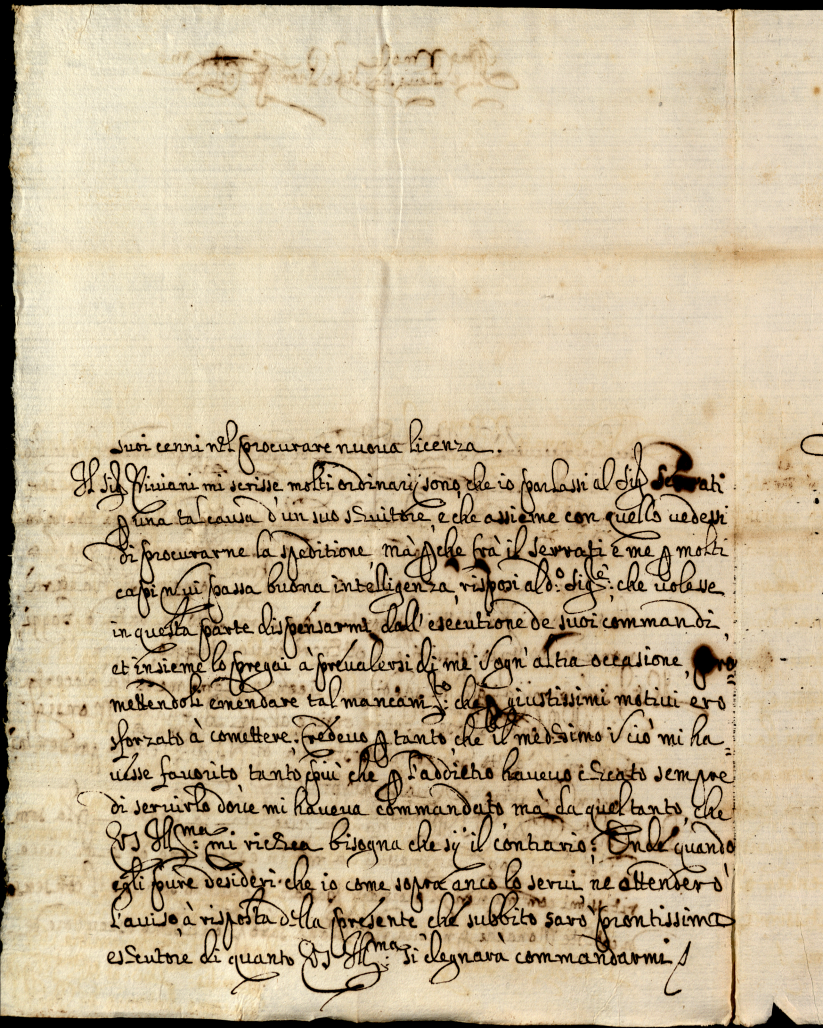 suoi cenni nel procurare nuoua licenza.
Il sig.r Viuiani mi scrisse molti ordinarij sono, che io parlassi al Sig.r Serrati
p una tal causa d'un suo seruitore, e che assieme con quello uedessi
di procurarne la speditione, mà pche frà il Serrati e me p molti
capi non ui passa buona intelligenza, risposi al d.o Sig.re: che uolesse
in questa parte dispensarmi dall'esecutione de suoi commandi
et insieme lo pregai à preualersi di me in ogn'altra occasione, pro=
mettendoli emendare tal mancam.to: che p giustissimi motiui ero
sforzato à comettere; Credeuo p tanto, che il medesimo in ciò mi ha=
uesse fauorito tanto più che p l'addietro haueuo cercato sempre
di seruirlo doue mi haueua commandato mà da quel tanto, che
VS Ill.ma: mi ricerca bisogna che sij il contrario; Onde quando
egli pure desideri che io come sopra anco lo serui ne attenderò
l'auiso à risposta della presente che subbito sarò prontissimo
esecutore di quanto VS Ill.ma: si degnarà commandarmi